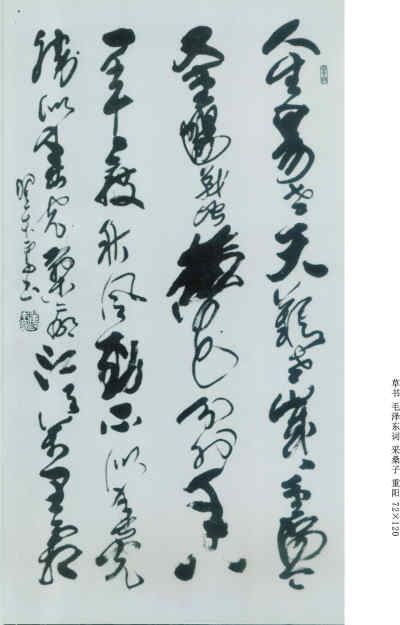 人生易老天難老歲歲重陽今
又重陽戰地黄花分外香
一年一度秋風勁不似春光
勝似春光寥廓江天万里霜
草书 毛泽东词 采桑子 重阳 72×120